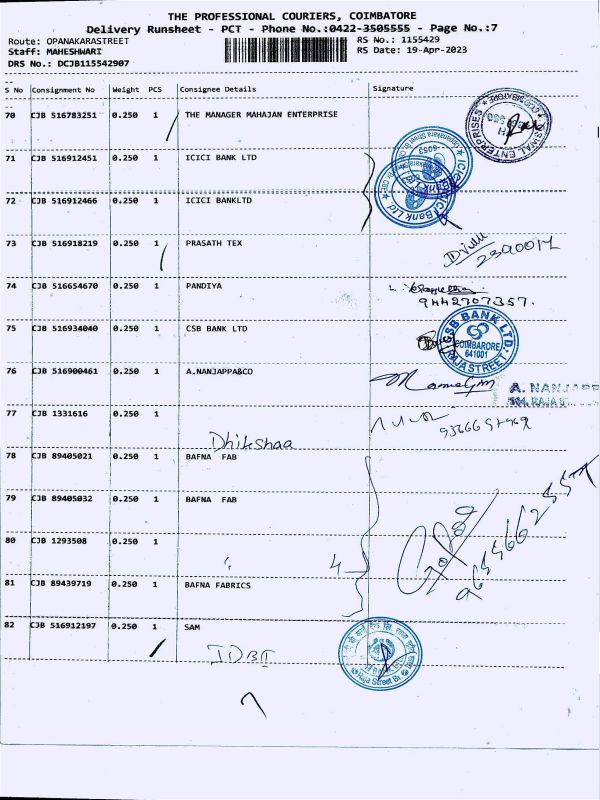 THE PROFESSIONAL COURIERS, COIMBATORE
Delivery Runsheet - PCT - Phone No.:0422-3505555 - Page No.:7
Route: OPANAKARASTREET RS No.: 1155429
Staff: MAHESHWARI RS Date: 19-Apr-2023
DRS No.: DCJB115542907
S No Consignment No Weight PCS Consignee Details Signature
70 CJB 516783251 0.250 1 THE MANAGER MAHAJAN ENTERPRISE
71 CJB 516912451 0.250 1 ICICI BANK LTD
72 CJB 516912466 0.250 1 ICICI BANKLTD
ICICI Bank Ltd
73 CJB 516918219 0.250 1 PRASATH TEX
74 CJB 516654670 0.250 1 PANDIYA
9442707357.
75 CJB 516934040 0.250 1 CSB BANK LTD
CSB BANK LTD.
COIMBATORE
641001
RAJA STREET
76 CJB 516900461 0.250 1 A.NANJAPPA&CO
A. NANJAPP
77 CJB 1331616 0.250 1
Dhikshaa
78 CJB 89405021 0.250 1 BAFNA FAB
79 CJB 89405032 0.250 1 BAFNA FAB
80 CJB 1293508 0.250 1 "
4
81 CJB 89439719 0.250 1 BAFNA FABRICS
82 CJB 516912197 0.250 1 SAM
IDBI
Raja Street Br